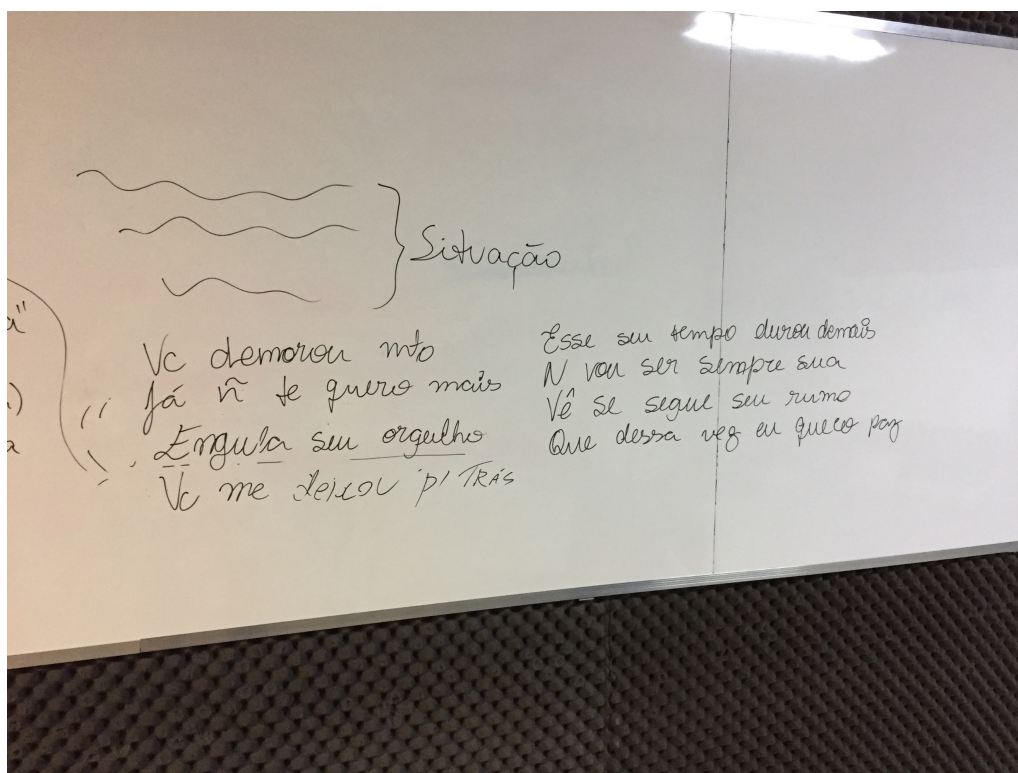 Situação
Vc demorou mto
Já ñ te quero mais
Engula seu orgulho
Vc me deixou p/ TRÁS
Esse seu tempo durou demais
N vou ser sempre sua
Vê se segue seu rumo
Que dessa vez eu quero paz